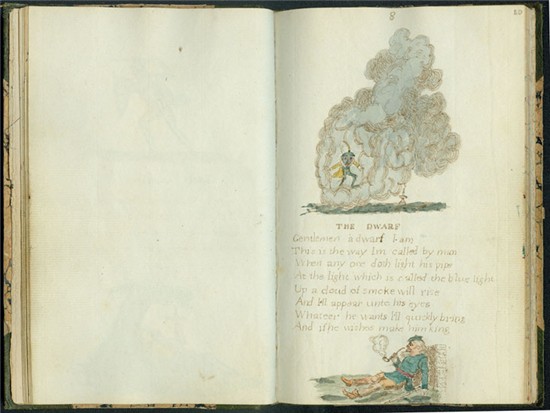 8
10
THE DWARF
Gentlemen a dwarf I am
This is the way Im called by man
When any one doth light his pipe
At the light which is called the blue light
Up a cloud of smoke will rise
And I'll appear unto his eyes
Whateer he wants I'll quickly bring
And if he wishes make him king